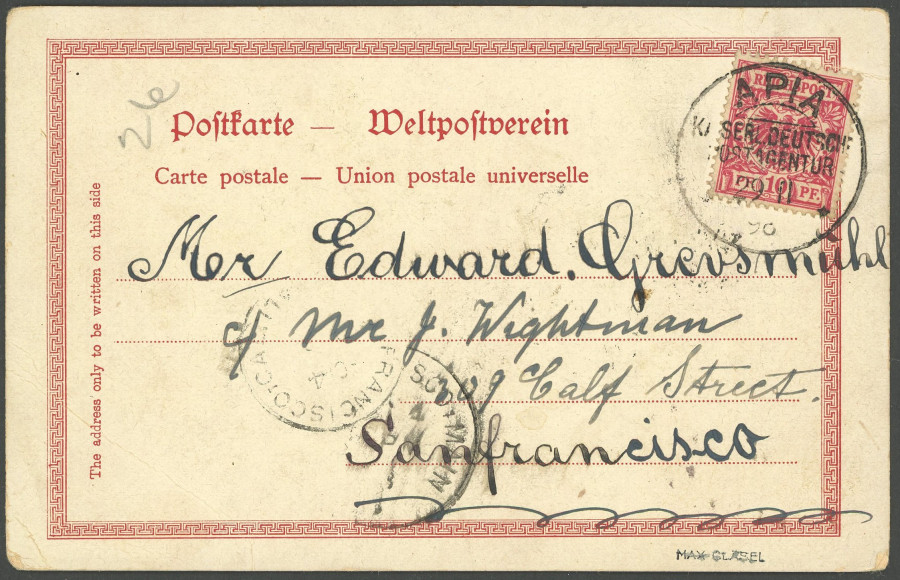 26
REICHSPOST
10 PF.
APIA
KAISERL. DEUTSCHE
POSTAGENTUR
11
98
Postkarte — Weltpostverein
Carte postale — Union postale universelle
The address only to be written on this side
Mr Edward. Grevsmühl
c/ Mr J. Wightman
209 Calf Street.
Sanfrancisco
FRANCISCO, CA
4
MAX GLÄSEL